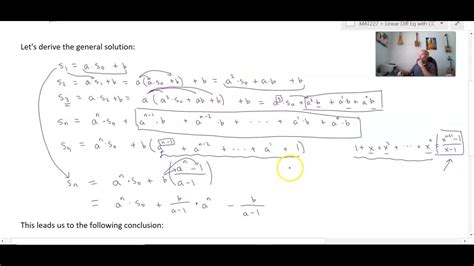 MAT227 > Linear Diff Eq with CC
Let's derive the general solution:
s₁ = a·s₀ + b
s₂ = a·s₁ + b = a(a·s₀ + b) + b = a²·s₀ + a·b + b
s₃ = a·s₂ + b = a(a²·s₀ + ab + b) + b = a³·s₀ + a²·b + a¹·b + a⁰b
sₙ = aⁿ·s₀ + aⁿ⁻¹·b + aⁿ⁻²·b + ··· + a¹·b + a⁰·b
sₙ = aⁿ·s₀ + b(aⁿ⁻¹ + aⁿ⁻² + ··· + a¹ + 1)
1 + x + x² + ··· + xⁿ = (xⁿ⁺¹ - 1)/(x - 1)
sₙ = aⁿ·s₀ + b((aⁿ - 1)/(a - 1))
= aⁿ·s₀ + b/(a-1) · aⁿ - b/(a-1)
This leads us to the following conclusion: